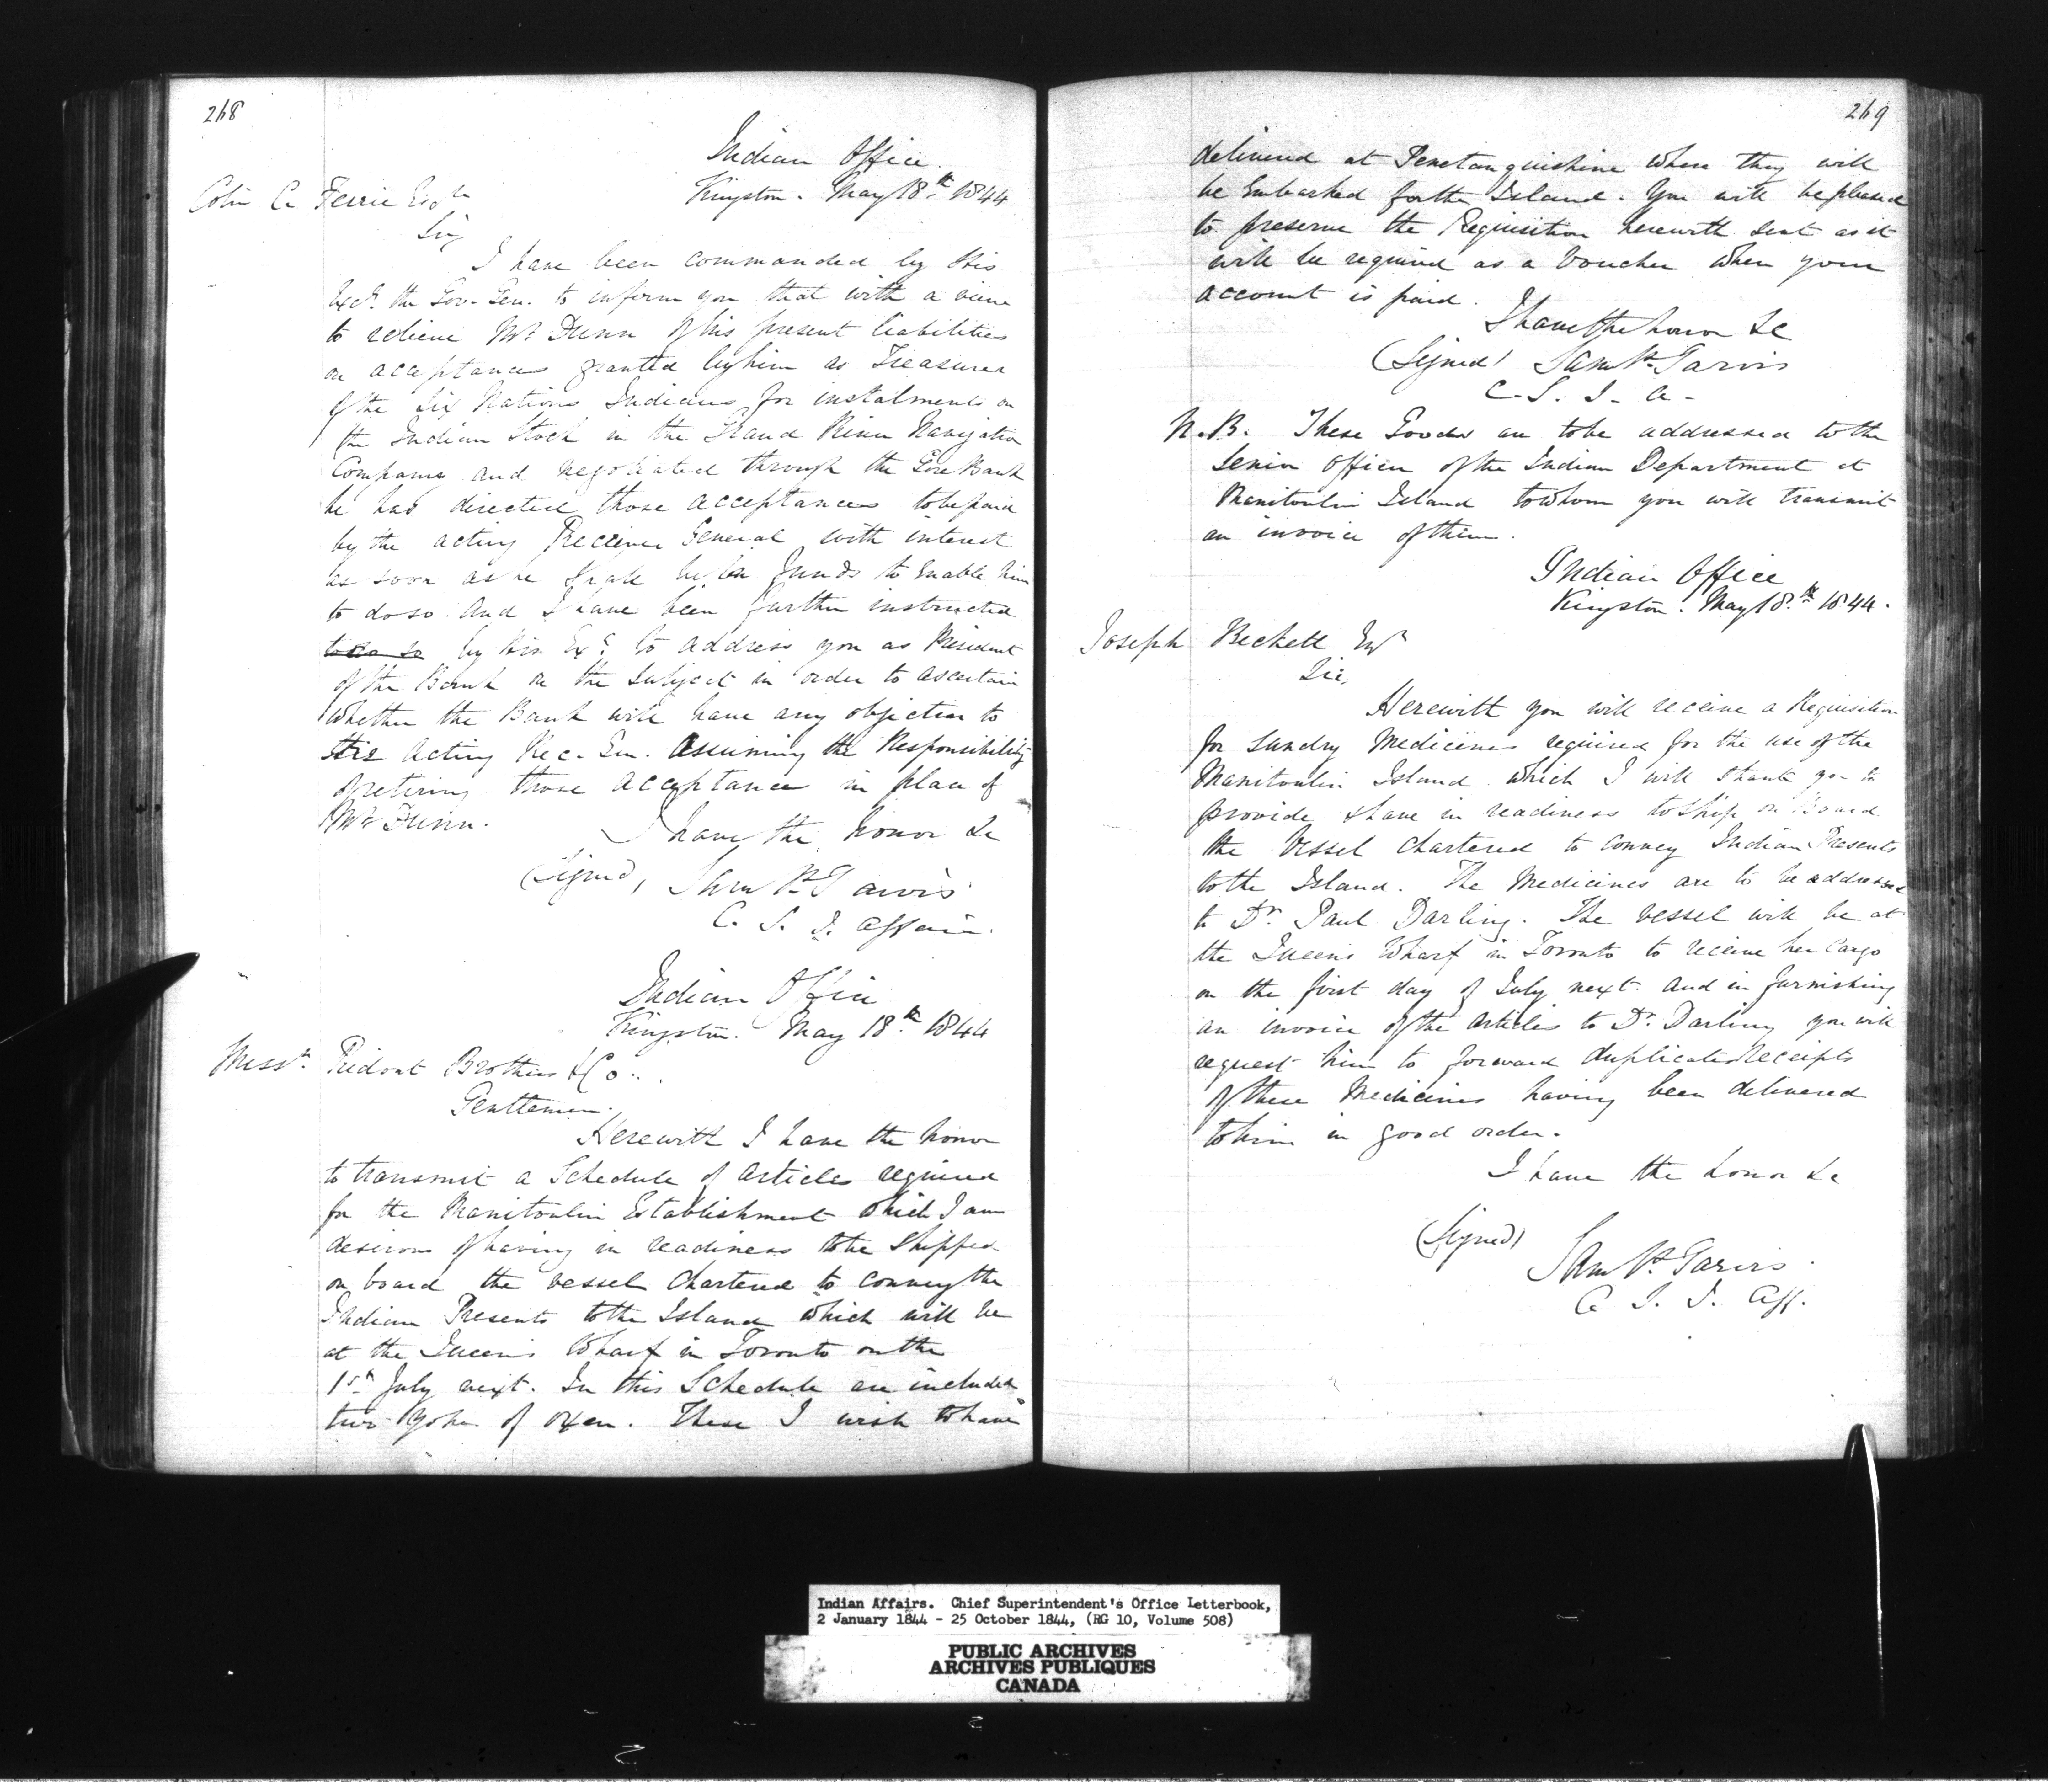 268
Indian Office
Kingston. May 18th 1844
Colin C Ferrie Esqre
Sir,
I have been commanded by His
Excy. the Gov. Gen. to inform you that with a view
to relieve Mr Dunn of his present liabilities
on acceptances granted by him as Treasurer
of the Six Nations Indians for instalments on
the Indian Stock in the Grand River Navigation
Company and negotiated through the Gore Bank
he has directed those acceptances to be paid
by the acting Receiver General with interest
as soon as he shall be in funds to enable him
to do so. And I have been further instructed
to do so by His Exy to address you as President
of the Bank on the subject in order to ascertain
whether the Bank will have any objection to
the acting Rec. Gen. assuming the Responsibility
of retiring those acceptances in place of
Mr Dunn.
I have the honor &c
(Signed) Sam P. Jarvis
C. S. I. Affairs.
Indian Office
Kingston. May 18th 1844
Messrs. Ridout Brothers & Co.
Gentlemen.
Herewith I have the honor
to transmit a Schedule of articles required
for the Manitoulin Establishment which I am
desirous of having in readiness to be shipped
on board the vessel chartered to convey the
Indian Presents to the Island which will be
at the Queen's Wharf in Toronto on the
1st July next. In this Schedule are included
two Yoke of oxen. These I wish to have
269
delivered at Penetanguishine where they will
be Embarked for the Island. You will be pleased
to preserve the Requisition herewith sent as it
will be required as a Voucher when your
account is paid.
I have the honor &c
(Signed) Sam P. Jarvis
C. S. I. A.
N.B. These Goods are to be addressed to the
Senior Officer of the Indian Department at
Manitoulin Island to whom you will transmit
an invoice of them.
Indian Office
Kingston. May 18th 1844.
Joseph Beckett Esqr
Sir,
Herewith you will receive a Requisition
for sundry Medicines required for the use of the
Manitoulin Island which I will thank you to
provide & have in readiness to ship on Board
the Vessel chartered to convey Indian Presents
to the Island. The Medicines are to be addressed
to Dr. Paul Darling. The vessel will be at
the Queens Wharf in Toronto to receive her Cargo
on the first day of July next. And in furnishing
an invoice of the articles to Dr. Darling you will
request him to forward duplicate Receipts
of these Medicines having been delivered
to him in good order.
I have the honor &c
(Signed)
Sam P. Jarvis.
C. S. I. Aff.
Indian Affairs. Chief Superintendent's Office Letterbook,
2 January 1844 - 25 October 1844, (RG 10, Volume 508)
PUBLIC ARCHIVES
ARCHIVES PUBLIQUES
CANADA